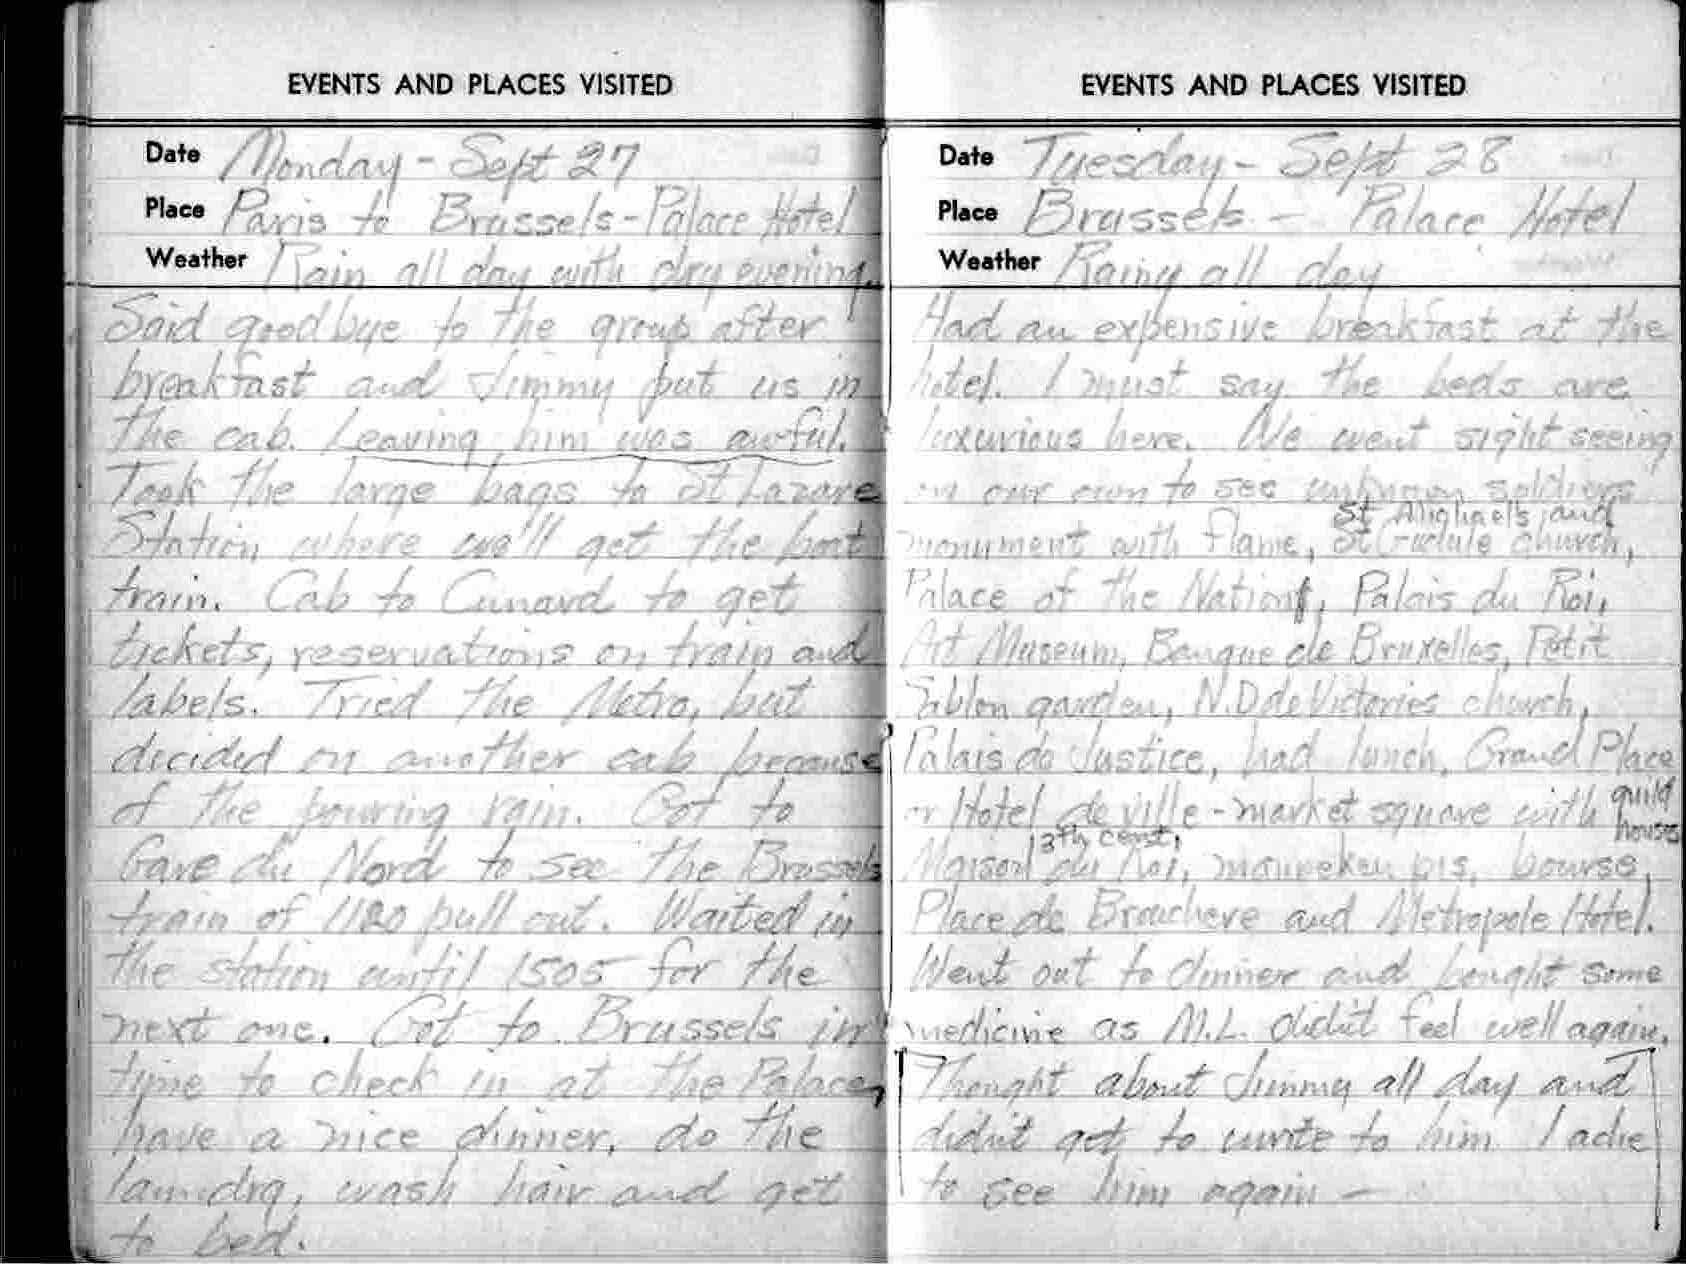 EVENTS AND PLACES VISITED
Date Monday - Sept 27
Place Paris to Brussels - Palace Hotel
Weather Rain all day with dry evening.
Said goodbye to the group after
breakfast and Jimmy put us in
the cab. Leaving him was awful.
Took the large bags to St Lazare
Station where we'll get the boat
train. Cab to Cunard to get
tickets, reservations on train and
labels. Tried the Metro, but
decided on another cab because
of the pouring rain. Got to
Gare du Nord to see the Brussels
train of 1120 pull out. Waited in
the station until 1505 for the
next one. Got to Brussels in
time to check in at the Palace,
have a nice dinner, do the
laundry, wash hair and get
to bed.
EVENTS AND PLACES VISITED
Date Tuesday - Sept 28
Place Brussels - Palace Hotel
Weather Rainy all day
Had an expensive breakfast at the
hotel. I must say the beds are
luxurious here. We went sight seeing
on our own to see unknown soldiers
St Michaels and
monument with flame, St Gudule church,
Palace of the Nations, Palais du Roi,
Art Museum, Banque de Bruxelles, Petit
Sablon garden, N.D de Victories church,
Palais de Justice, had lunch, Grand Place
or Hotel de ville - market square with guild
houses
13th cent,
Maison du Roi, manneken pis, bourse,
Place de Brouchere and Metropole Hotel.
Went out to dinner and bought some
medicine as M.L. didn't feel well again.
Thought about Jimmy all day and
didn't get to write to him. I ache
to see him again -